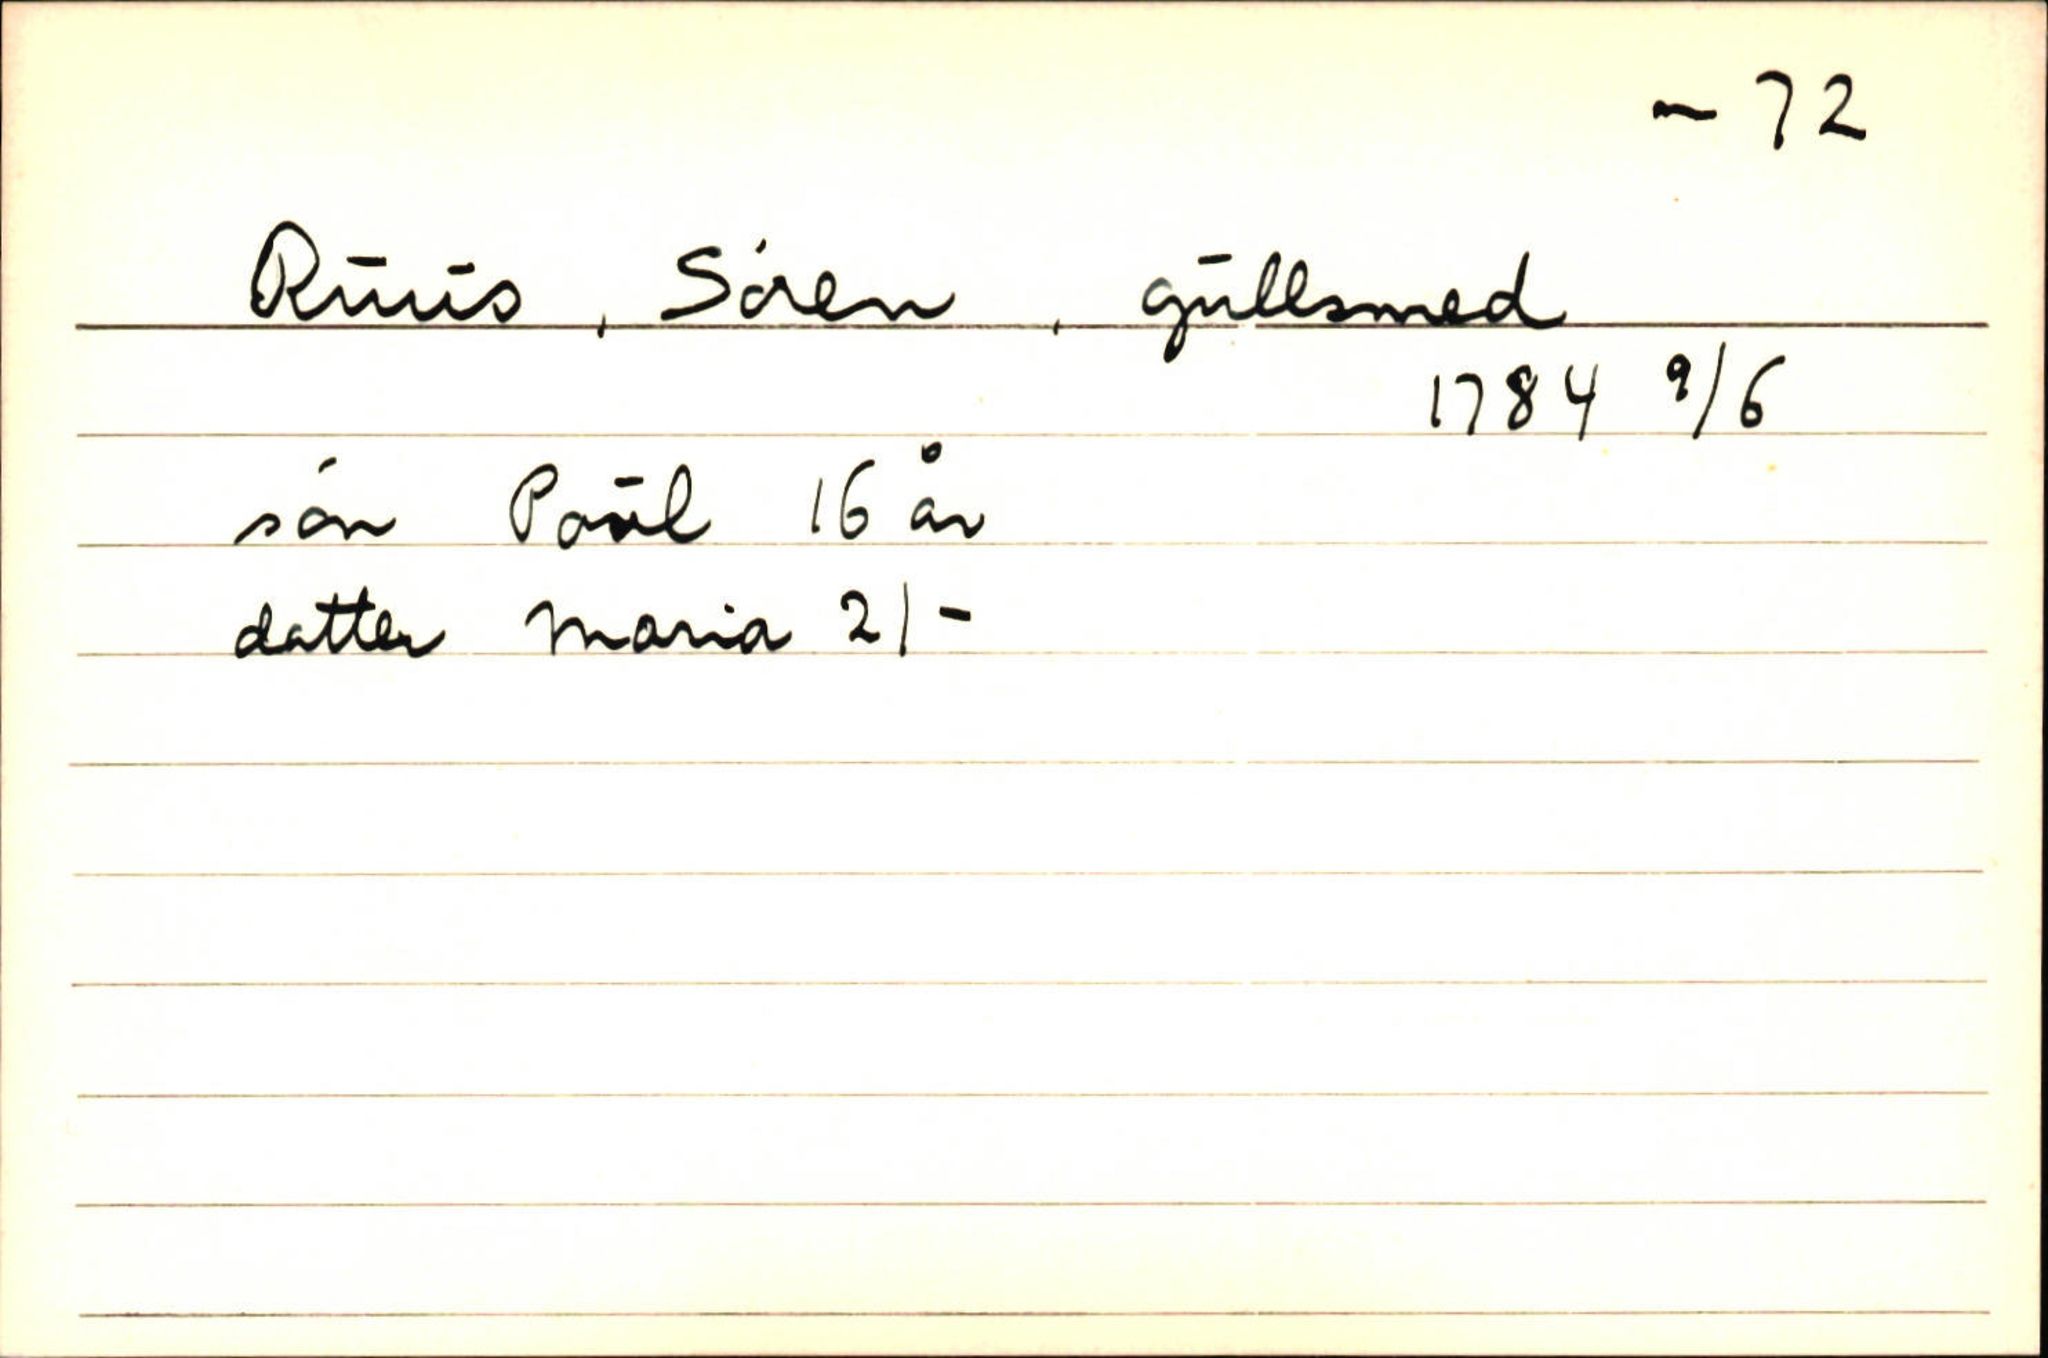 - 72
Ruus, Sören, gullsmed
1784 9/6
sön Poul 16 år
datter Maria 21 -